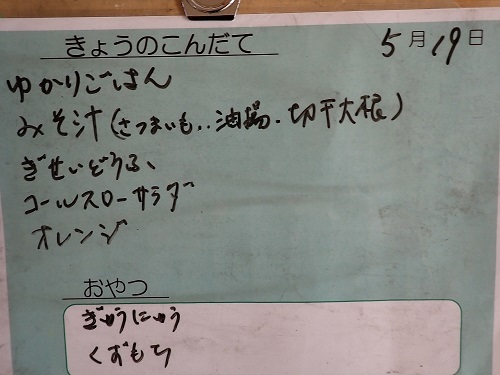 きょうのこんだて
5月19日
ゆかりごはん
みそ汁(さつまいも、油揚、切干大根)
ぎせいどうふ
コールスローサラダ
オレンジ
おやつ
ぎゅうにゅう
くずもち